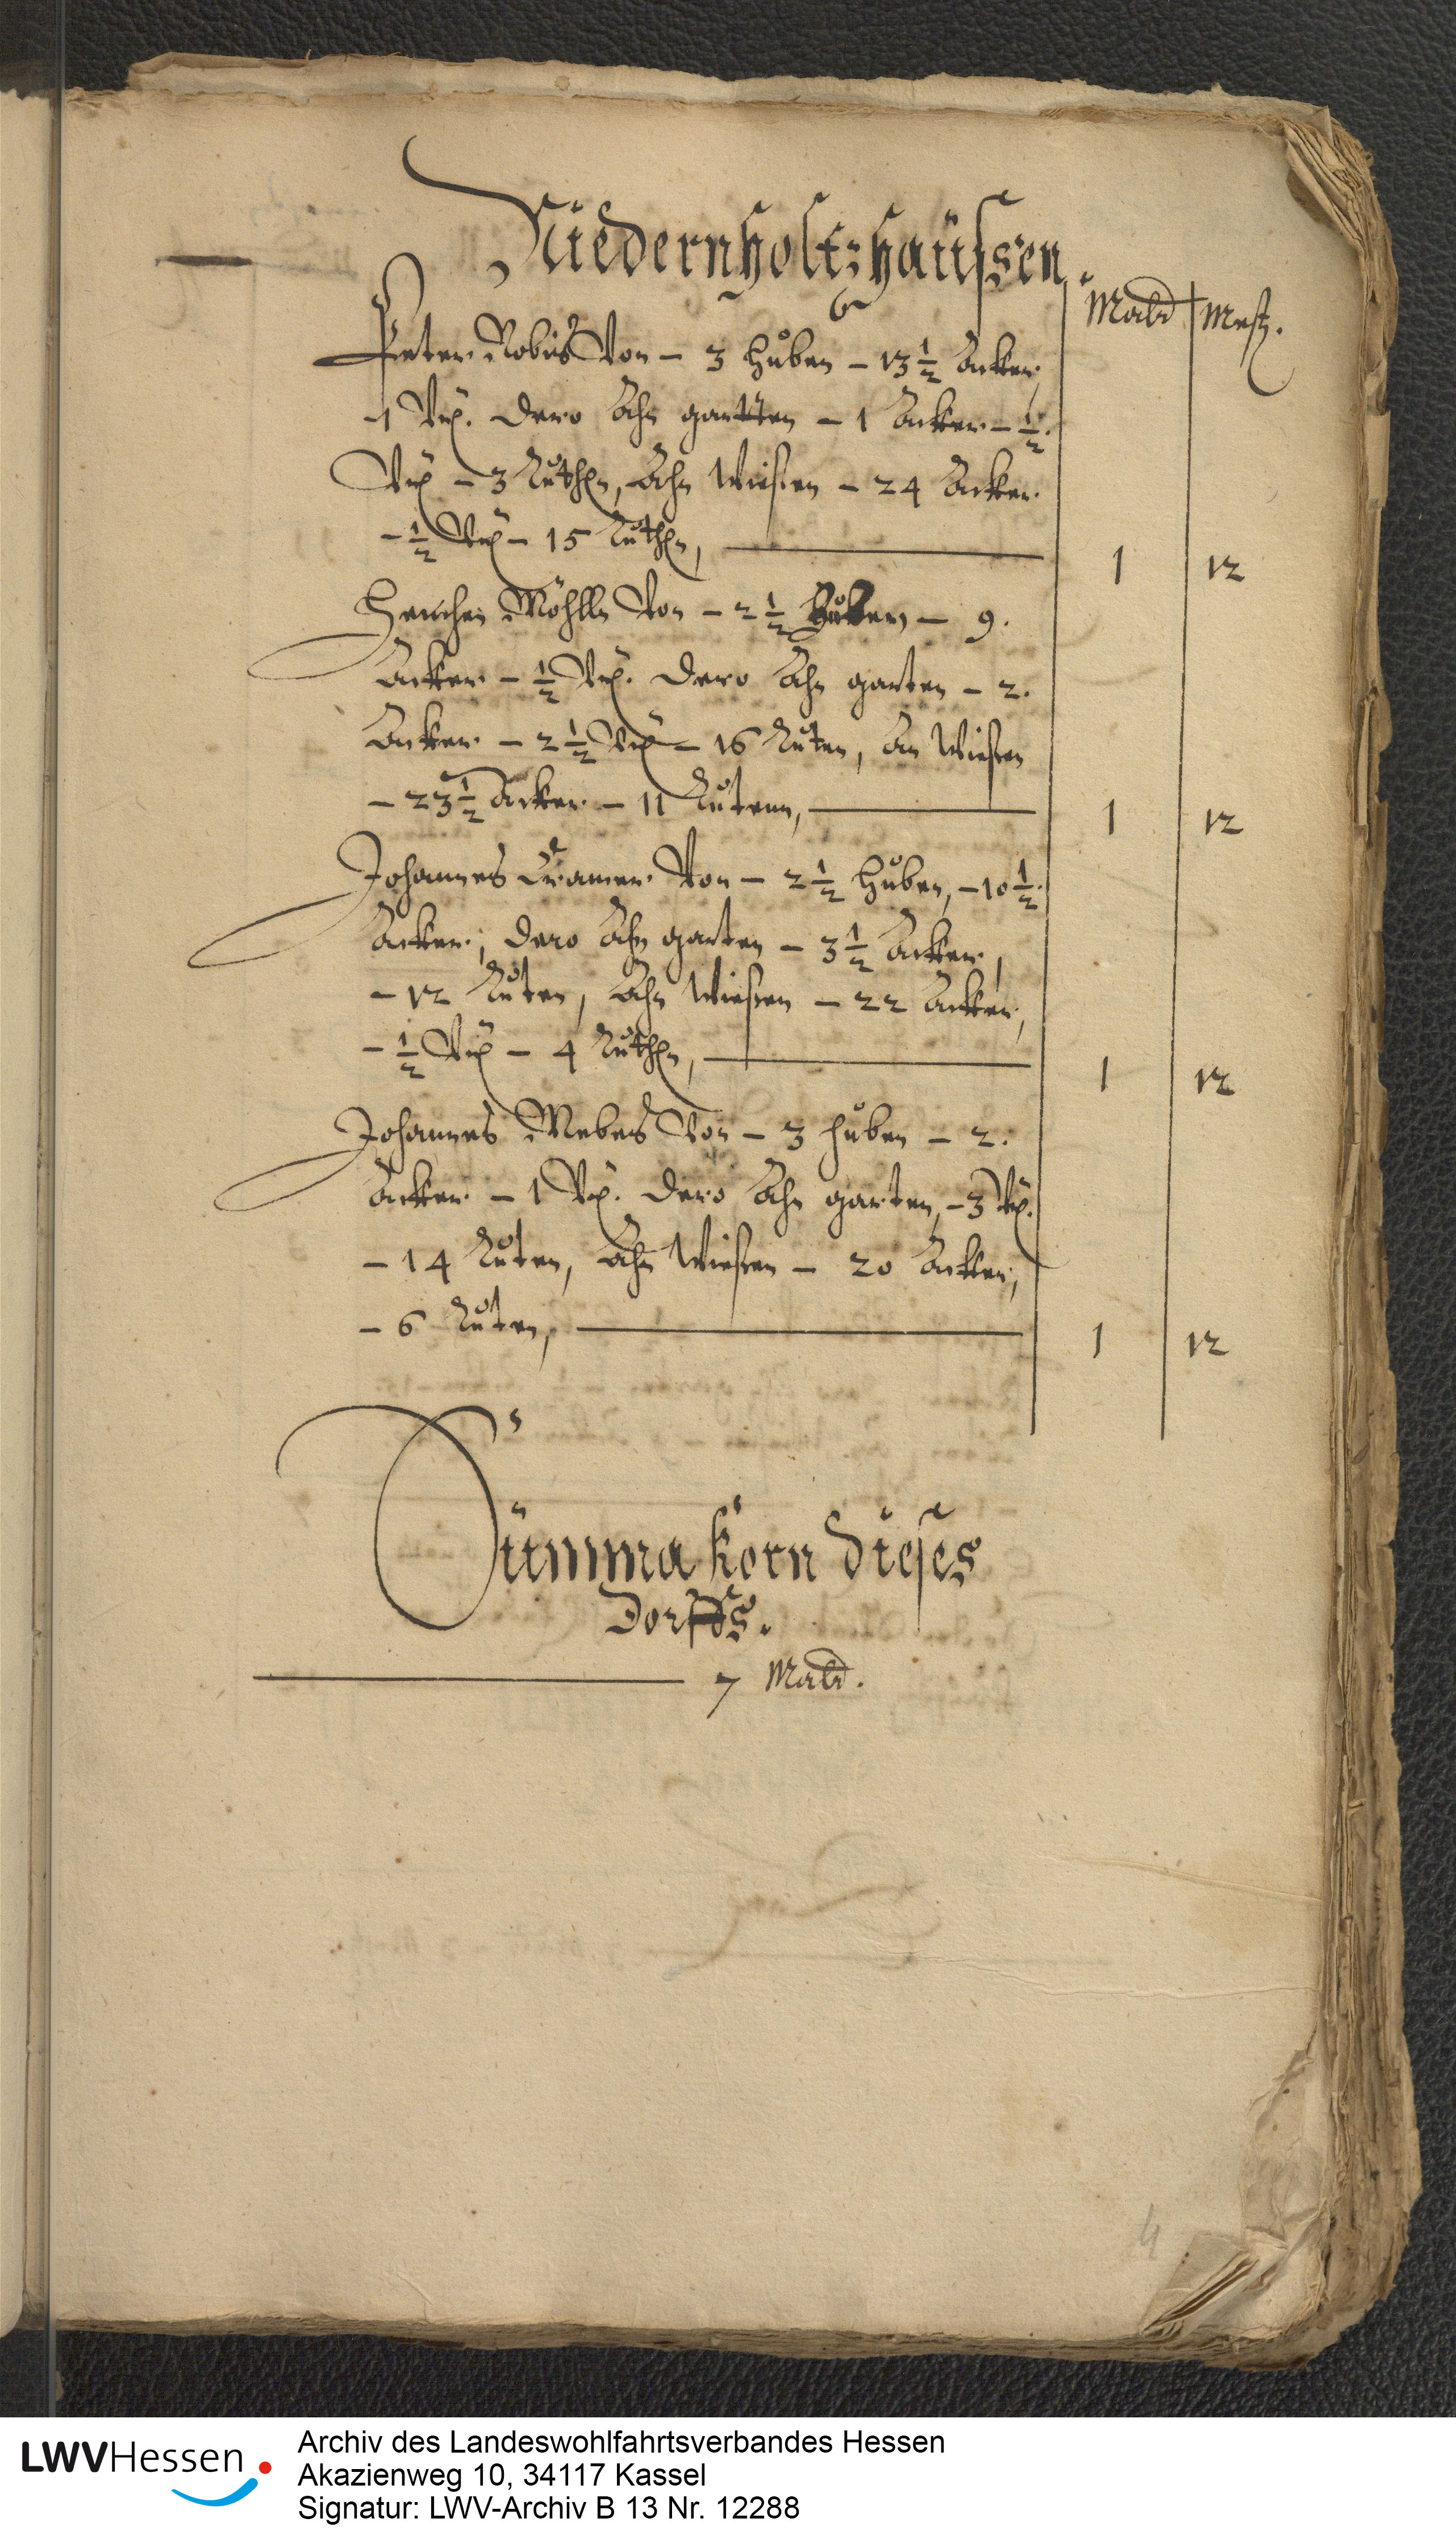 Niedernholtzhaüssen.
Mald Mesz.
Peter Robus Von – 3 hůben – 13 1/2 Acker,
– 1 Vrß. dero Ahn gartten – 1 Acker – 1/2
Vrß – 3 Růthen, Ahn Wiesen – 24 Acker
– 1/2 Vrß – 15 Růthen, 1 12
Henchen Möhlln Von – 2 1/2 Hůben – 9.
Acker – 1/2 Vrß. dero Ahn garten – 2.
Acker – 2 1/2 Vrß – 16 Růten, An Wiesen
– 23 1/2 Acker – 11 Růtenn, 1 12
Johannes Cramer Von – 2 1/2 Hůben, – 10 1/2
Acker, dero Ahn garten – 3 1/2 Acker,
– 12 Růten, Ahn Wiesen – 22 Acker,
– 1/2 Vrß – 4 Růthen, 1 12
Johannes Mebes Von – 3 hůben – 2.
Acker – 1 Vrß. dero Ahn garten, – 3 Vrß.
– 14 Růten, Ahn Wiesen – 20 Acker,
– 6 Růten, 1 12
Sümma korn dieses
Dorffs.
7 Mald.
4
LWVHessen
Archiv des Landeswohlfahrtsverbandes Hessen
Akazienweg 10, 34117 Kassel
Signatur: LWV-Archiv B 13 Nr. 12288